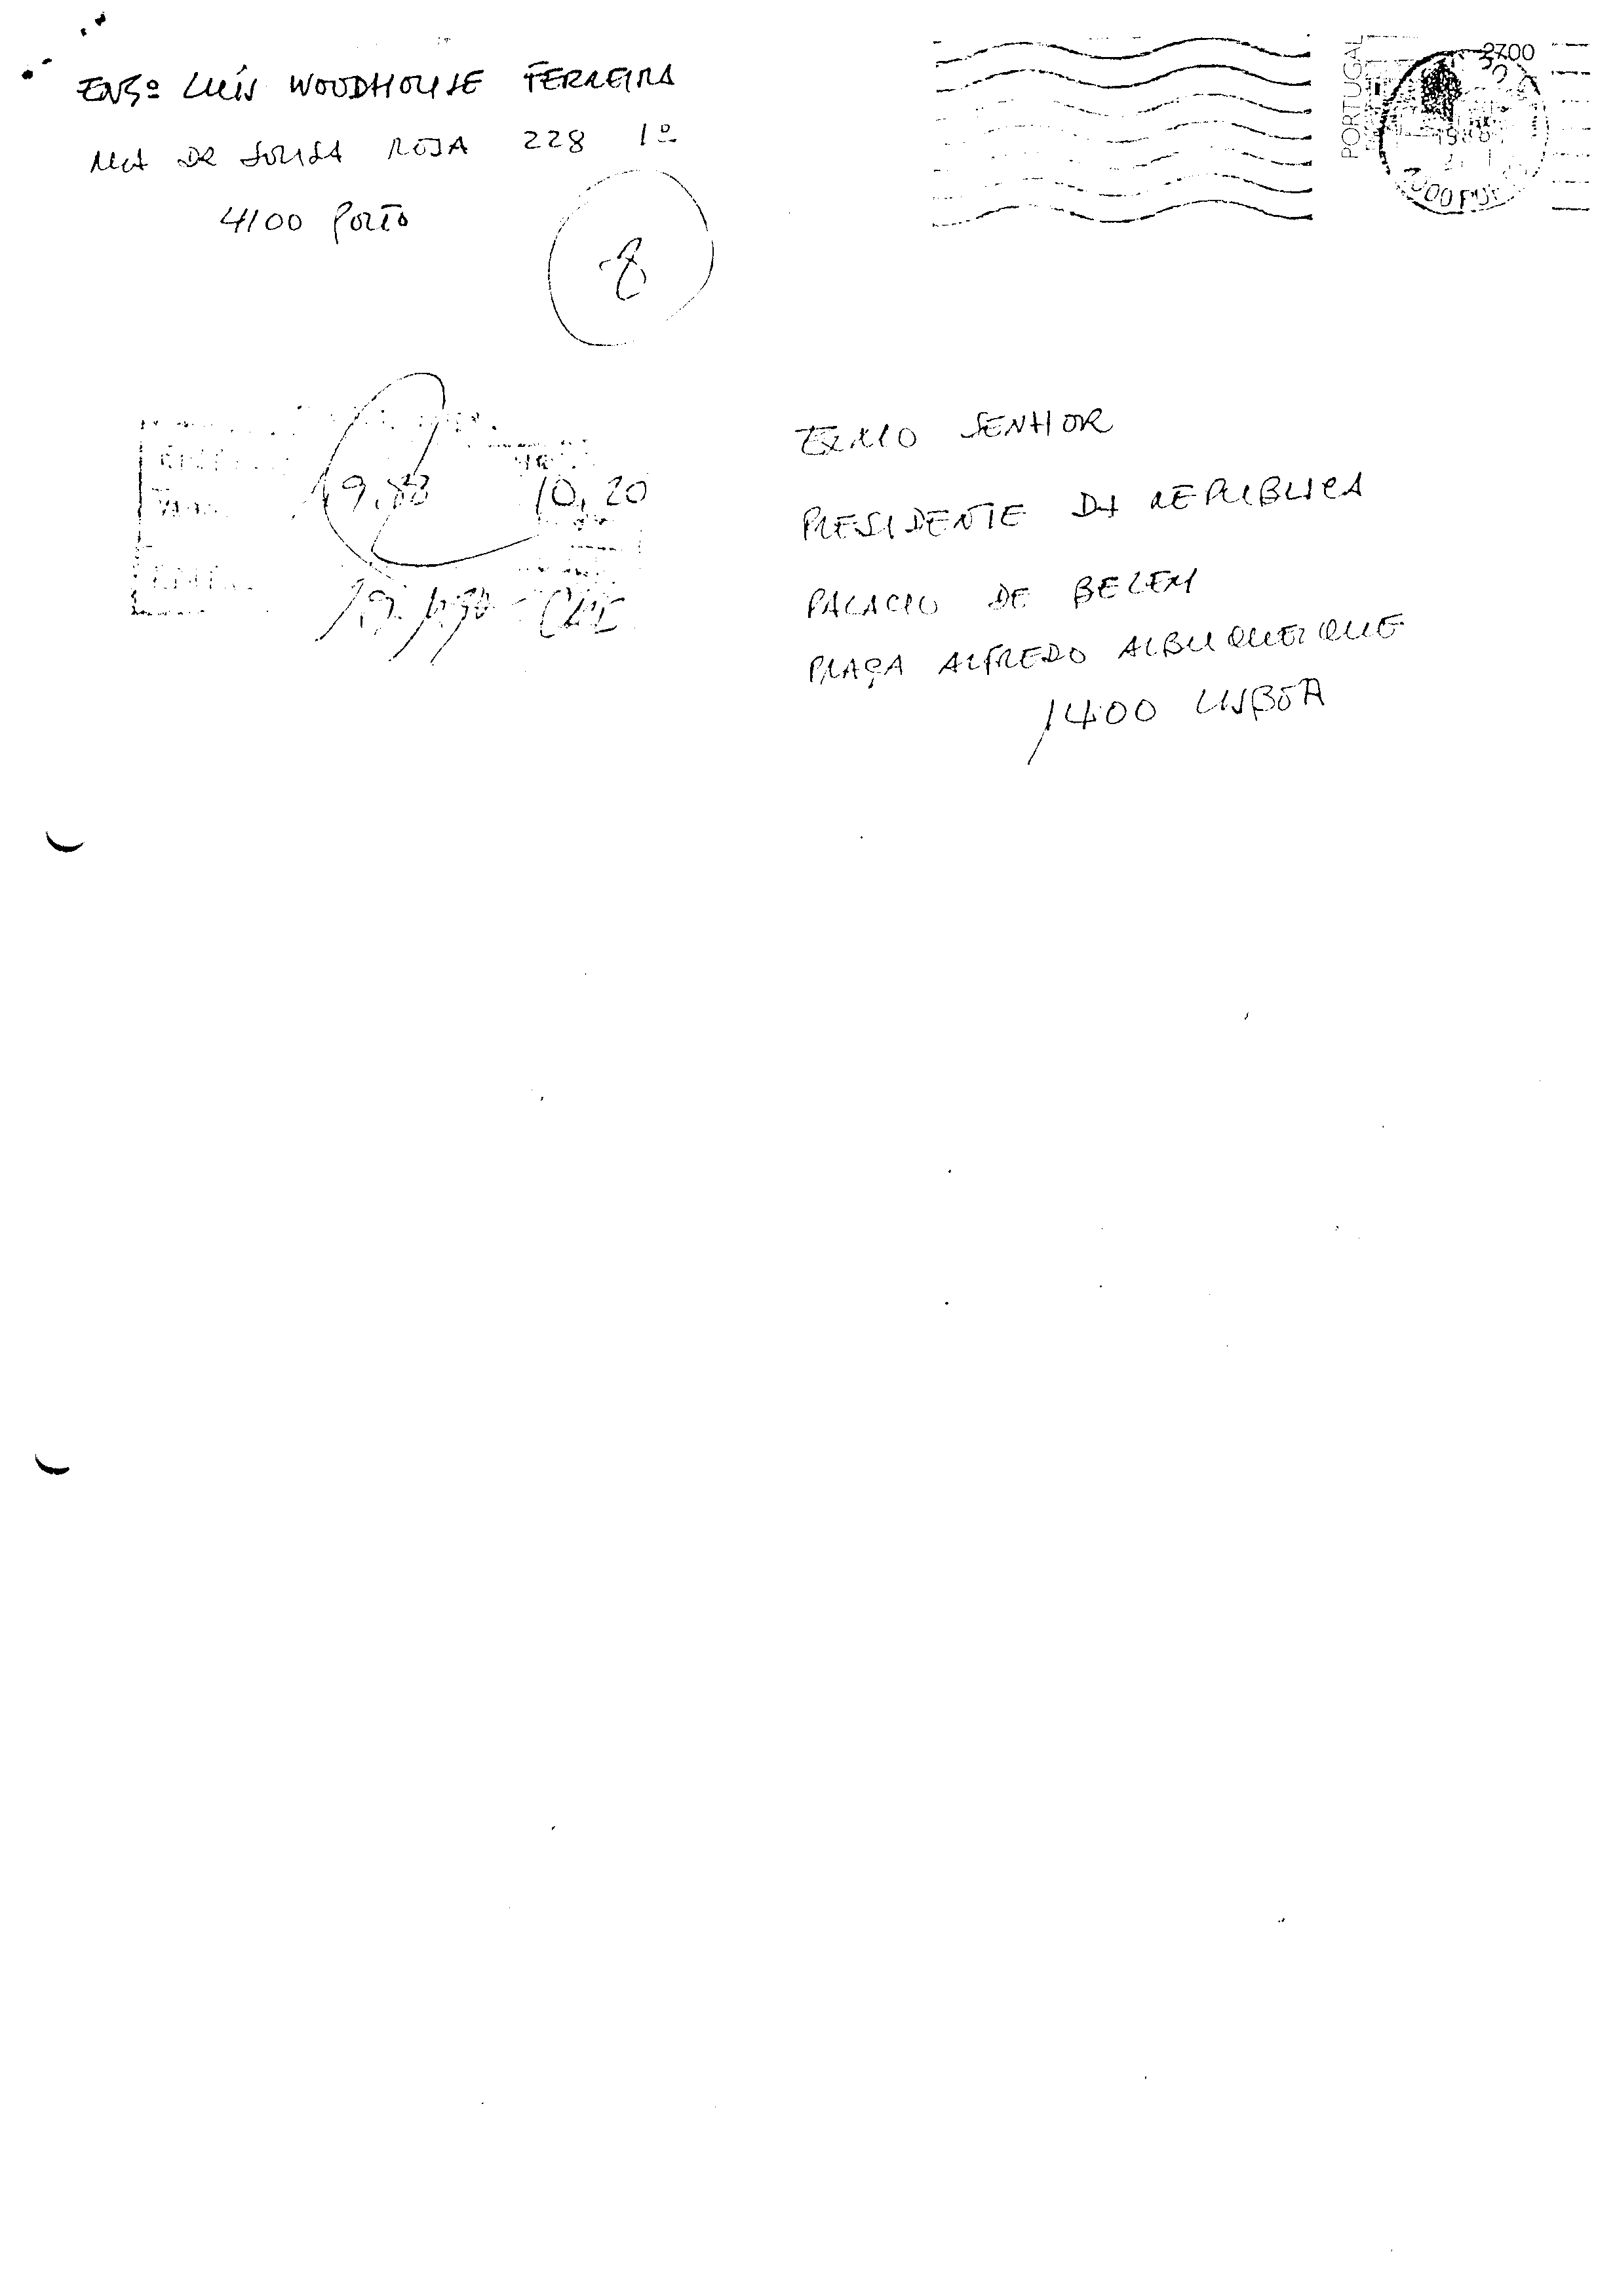 ENGº LUÍS WOODHOUSE FERREIRA
RUA DE SOUSA ROSA 228 1º
4100 PORTO
8
PORTUGAL
2700
1988
19.88 10,20
EXMO SENHOR
PRESIDENTE DA REPUBLICA
PALACIO DE BELEM
PRAÇA ALFREDO ALBUQUERQUE
1400 LISBOA